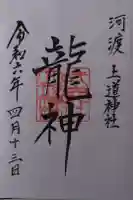 河渡 上道神社
龍神
令和六年 四月十三日